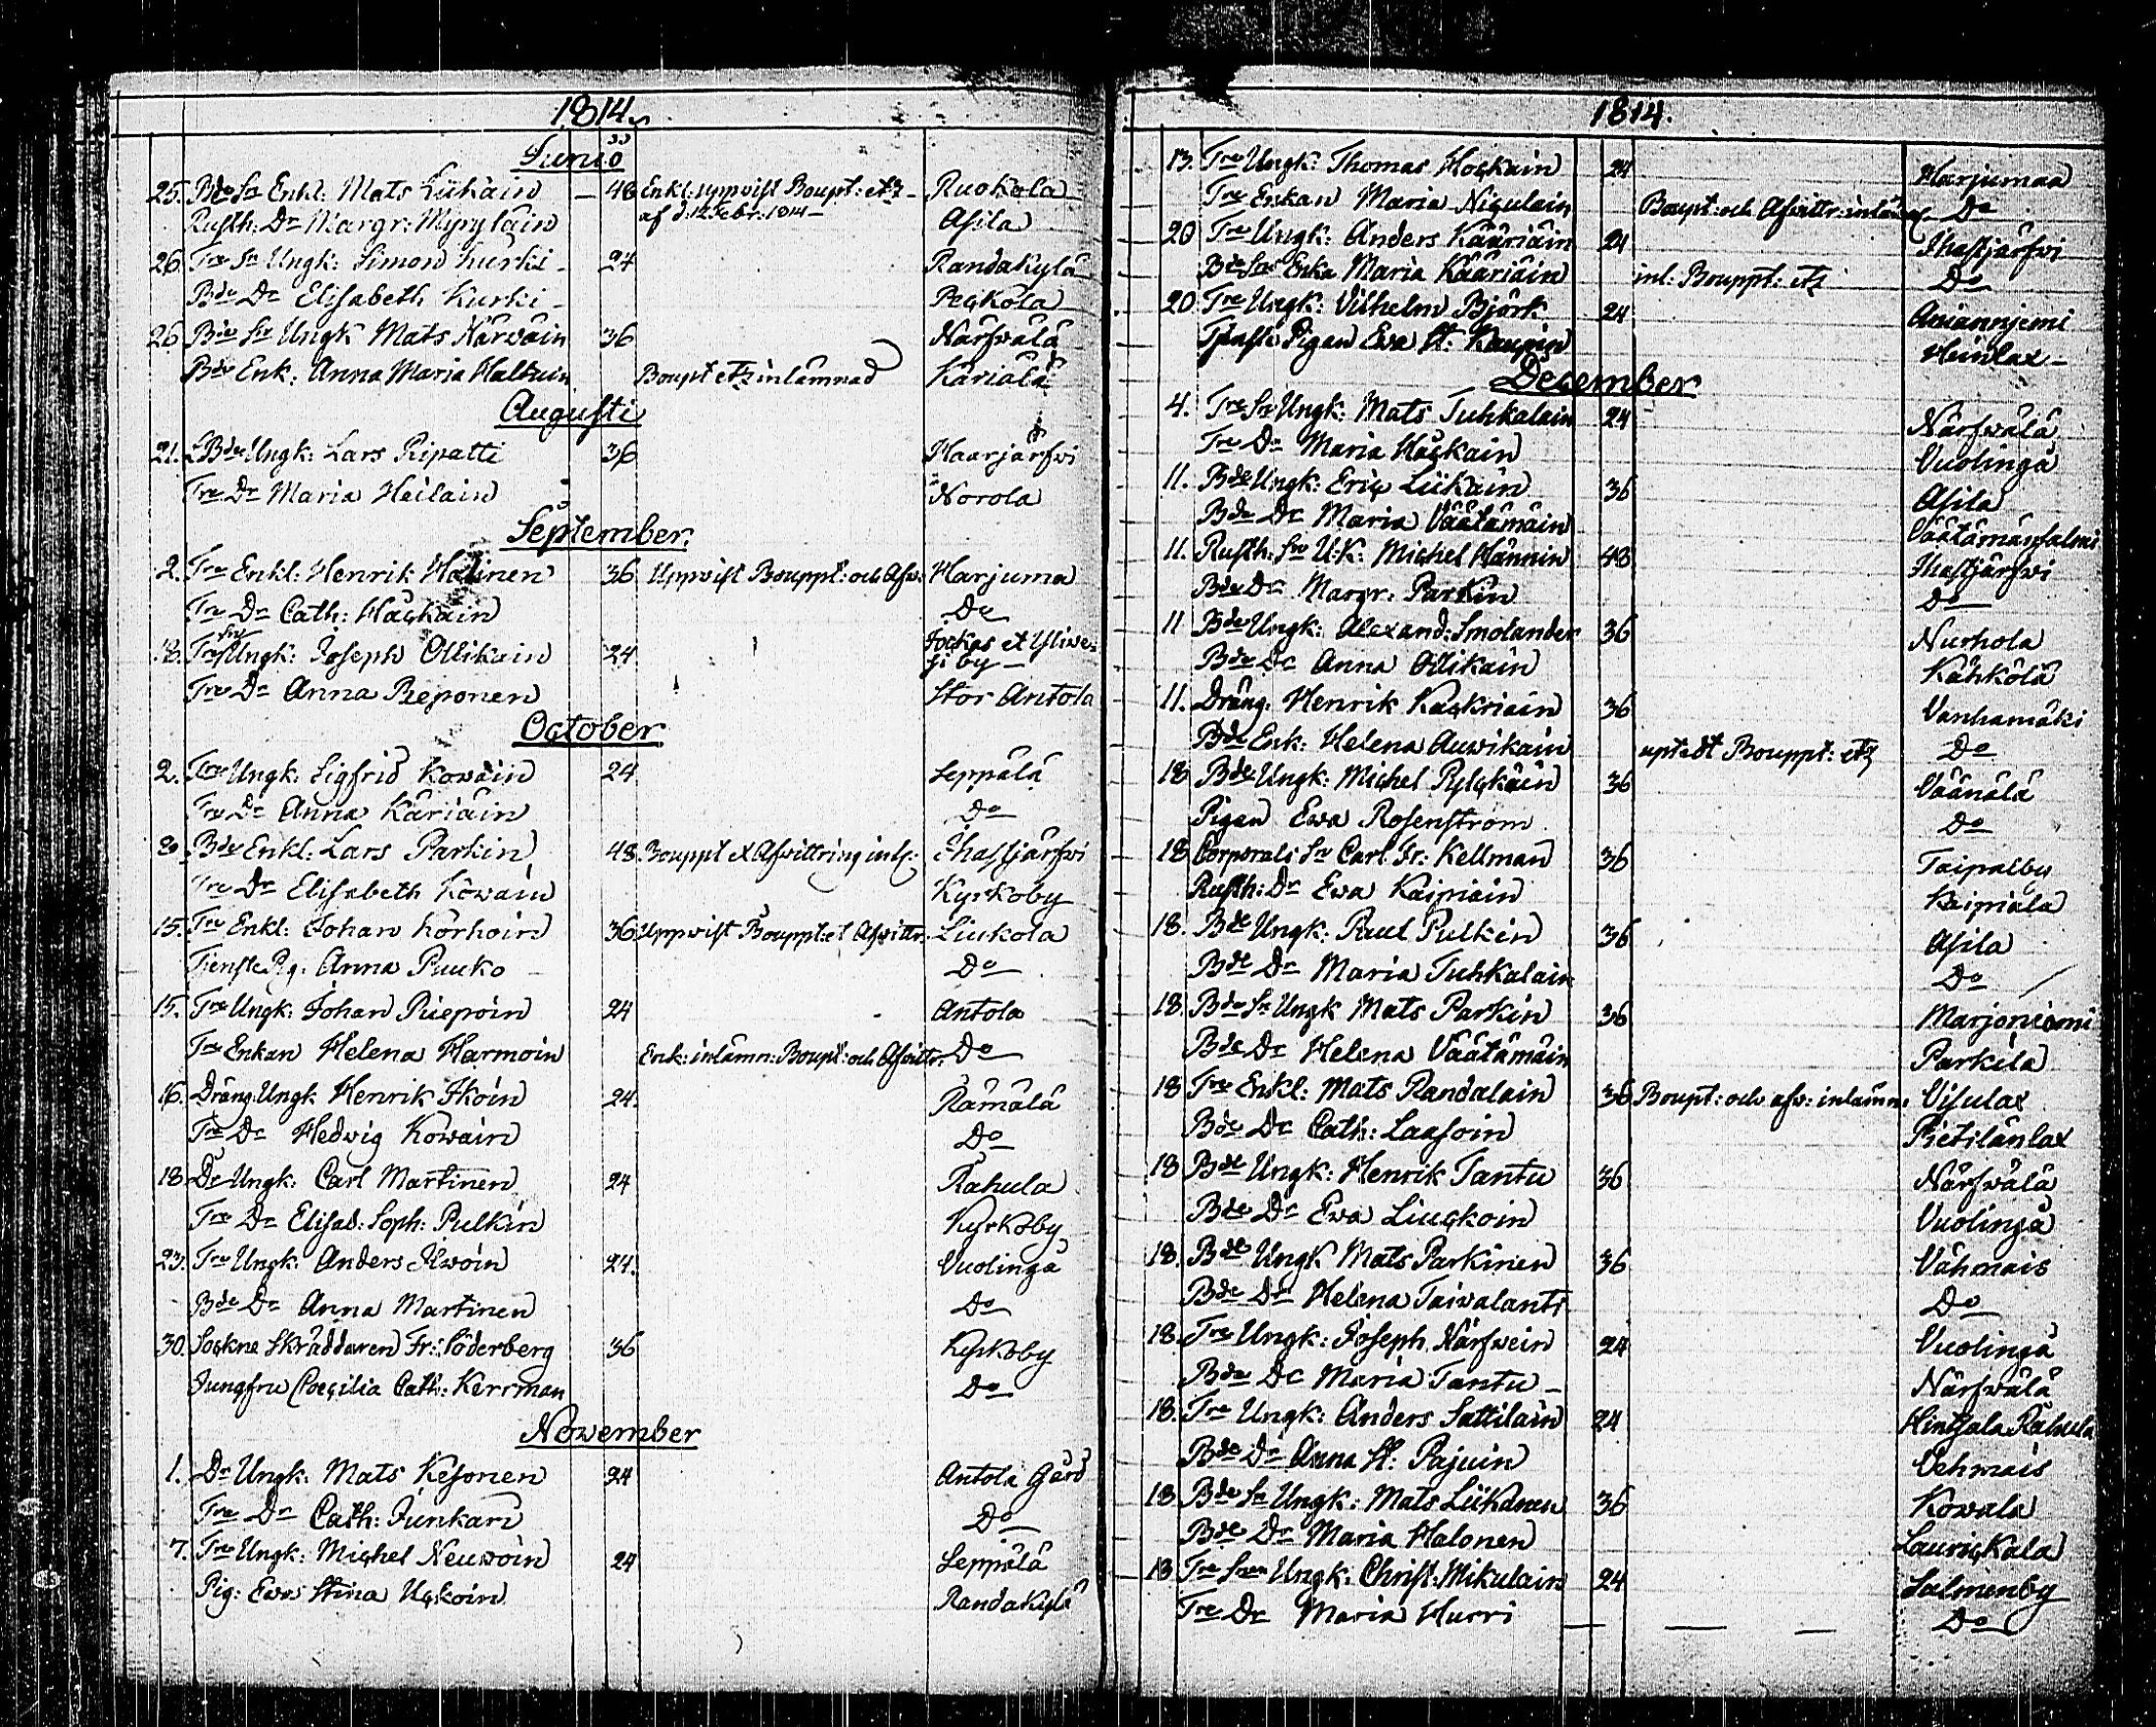 1814.
Junio
25. Bde Sn Enkl: Mats Liikain — 48 Enkl: uppvist Boupt: etz – Ruokola
af d: 12 Febr: 1814 –
Rusth: Dr Margr: Myrylain Asila
26. Tre Sn Ungk: Simon Kurki – 24 Randakylä
Bde Dr Elisabeth Kurki – Peckola
26 Bde Sn Ungk Mats Närwäin 36 Närfwälä
Bde Enk: Anna Maria Halkuin Boupt etz inlämnad Käriälä
Augusti
21. Bde Ungk: Lars Ripatti 36 Haarjärfwi
Tre Dr Maria Heilain Norola
September.
2. Tre Enkl: Henrik Halinen 36 Uppvist Bouppt: och Afw: Harjuma
Tre Dr Cath: Häckäin Do
18. Tre Sn Ungk: Joseph Ollikain 24 Jockas et Yliwe-
si by —
Tre Dr Anna Reponen Stor Antola
October
2. Tre Ungk: Sigfrid Kowain 24 Leppälä
Tre Dr Anna Käriäin Do
Bde Enkl: Lars Parkin 48. Bouppt & Afwittring inl: Ihastjärfwi
Tre Dr Elisabeth Kowain Kyrkoby
15. Tre Enkl: Johan Korhoin 36 Uppvist Bouppt: et Afwittr: Liukola
Tienste Pig: Anna Pucko – Do
15. Tre Ungk: Johan Riepoin 24 Antola
Tre Enkan Helena Harmoin Enk: inlämn: Boupt: och Afwittr: Do
16. Dräng Ungk Henrik Ikoin 24. Rämälä
Tre Dr Hedvig Kowain Do
18. Dr Ungk: Carl Martinen 24 Rahula
Tre Dr Elisab: Soph: Pulkin Kyrkoby
23. Tre Ungk: Anders Ilwoin 24. Vuolinga
Bde Dr Anna Martinen Do
30. Sockne Skräddaren Fr: Söderberg 36 Kyrkoby
Jungfru Coecilia Cath: Kerrman Do
November
1. Dr Ungk: Mats Kesonen 24 Antola Gård
Tre Dr Cath: Junkari Do
7. Tre Ungk: Michel Neuwoin 24 Leppälä
Pig: Ewa Stina Uckoin Randakylä
1814.
13. Tre Ungk: Thomas Hockain 24 Harjumaa
Tre Enkan Maria Nigulain Boupt: och Afwittr: inlämn: Do
20 Tre Ungk: Anders Kääriäin 24 Ihastjärfwi
Bde Enka Maria Kääriäin inl: Bouppt: etz Do
20 Tre Ungk: Vilhelm Björk 24
Pigan Ewa St: Kaupin Heinlax –
December
4. Tre Sn Ungk: Mats Tuhkalain 24 Närfwälä
Tre Dr Maria Häckäin Vuolinga
11. Bde Ungk: Eric Liikain 36 Asila
Bde Dr Maria Väätämäin Väätämänsalmi
11. Rusth: Sn U:K: Michel Hännin 48 Ihastjärfwi
Bde Dr Margr: Parkin Do
11 Bde Ungk: Alexand: Smolander 36 Nurhola
Bde Dr Anna Ollikain Kähkölä
11. Dräng: Henrik Kackriain 36 Vanhamäki
Bde Enk: Helena Auwikain Bouppt: etz Do
18 Bde Ungk: Michel Pylckäin 36 Väänälä
Pigan Ewa Rosenström Do
18 Corporals Sn Carl Fr: Kellman 36 Taipalby
Rusth: Dr Ewa Kaipiain Kaipiala
18. Bde Ungk: Paul Pulkin 36 Asila
Bde Dr Maria Tuhkalain Do
18. Bde Sn Ungk Mats Parkin 36 Marjoniemi
Bde Dr Helena Väätämäin Parkila
18 Tre Enkl: Mats Randalain 36 Boupt: och afw: inlämn: Visulax
Bde Dr Cath: Laasoin Pietilänlax
18 Bde Ungk: Henrik Tantu 36 Närfwälä
Bde Dr Ewa Liuckoin Vuolinga
18. Bde Ungk Mats Parkinen 36 Vähmais
Bde Dr Helena Taivalanti Do
18. Tre Ungk: Joseph Närfwein 24 Vuolinga
Bde Dr Maria Tantu – Närfwälä
18. Tre Ungk: Anders Sattilain 24 Hintsala Rahula
Bde Dr Anna St: Pajuin Vehmais
18 Bde Sn Ungk: Mats Liikanen 36 Kowala
Bde Dr Maria Halonen Laurickala
18 Tre Ungk: Christ: Mikulain 24 Salmenby
Tre Dr Maria Hurri Do